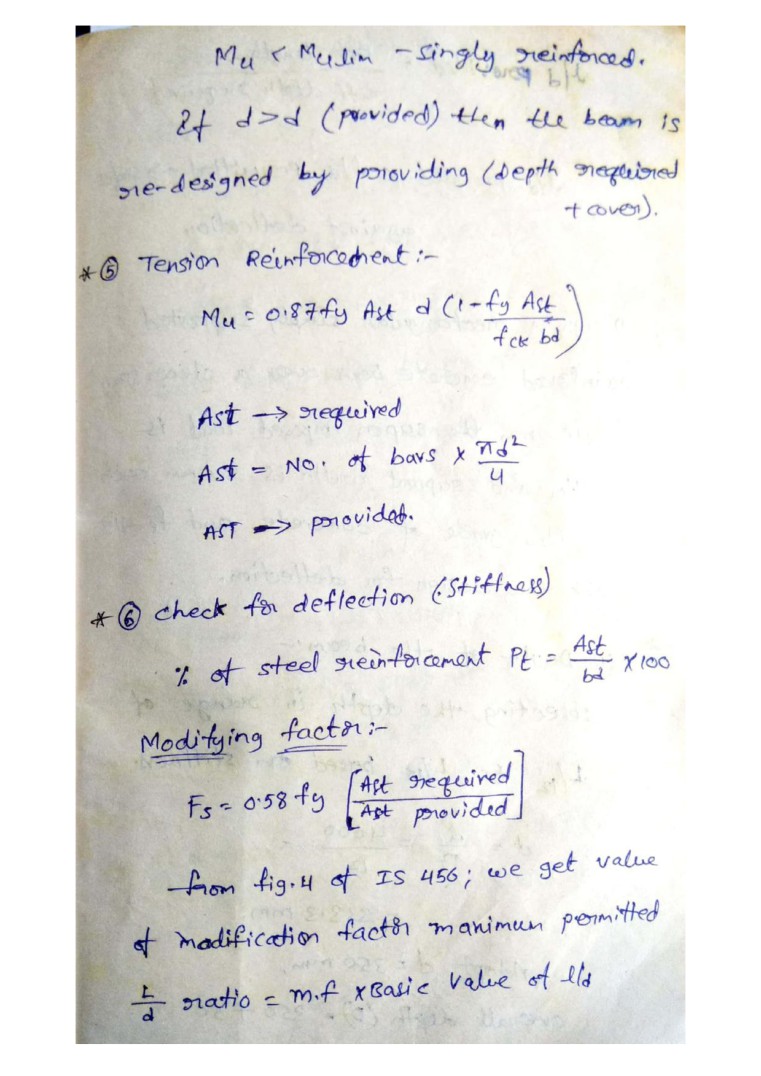 Mu < Mulim - singly reinforced.
If d>d (provided) then the beam is
re-designed by providing (depth required
+ cover).
*⑤ Tension Reinforcement :-
Mu = 0.87fy Ast d (1 - fy Ast / fck bd)
Ast → required
Ast = No. of bars x πd²/4
AST → provided.
*⑥ check for deflection (:stiffness)
% of steel reinforcement Pt = Ast/bd x 100
Modifying factor :-
Fs = 0.58 fy [Ast required / Ast provided]
from fig.4 of IS 456; we get value
of modification factor manimum permitted
L/d ratio = m.f x Basic value of l/d